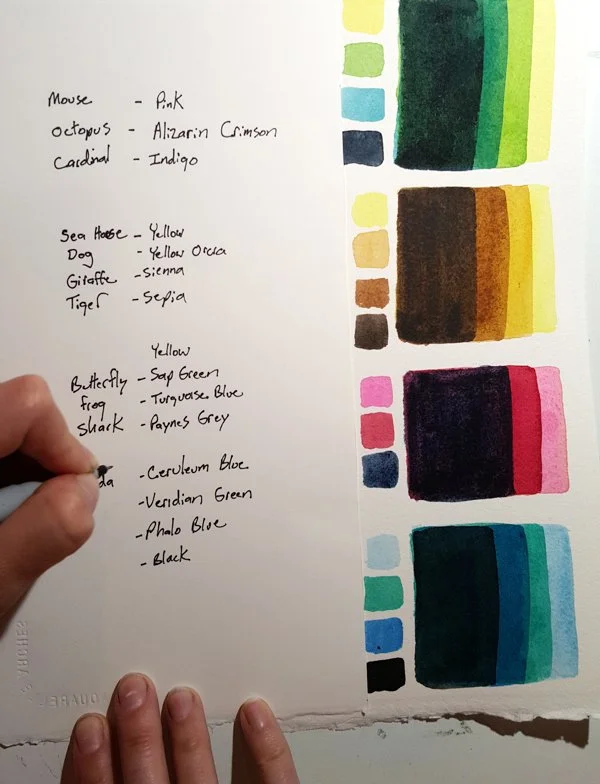 Mouse - Pink
Octopus - Alizarin Crimson
Cardinal - Indigo
Sea Horse - Yellow
Dog - Yellow Orcra
Giraffe - Sienna
Tiger - Sepia
Yellow
Butterfly - Sap Green
frog - Turquoise Blue
Shark - Paynes Grey
da - Ceruleum Blue
- Veridian Green
- Phalo Blue
- Black
ARCHES